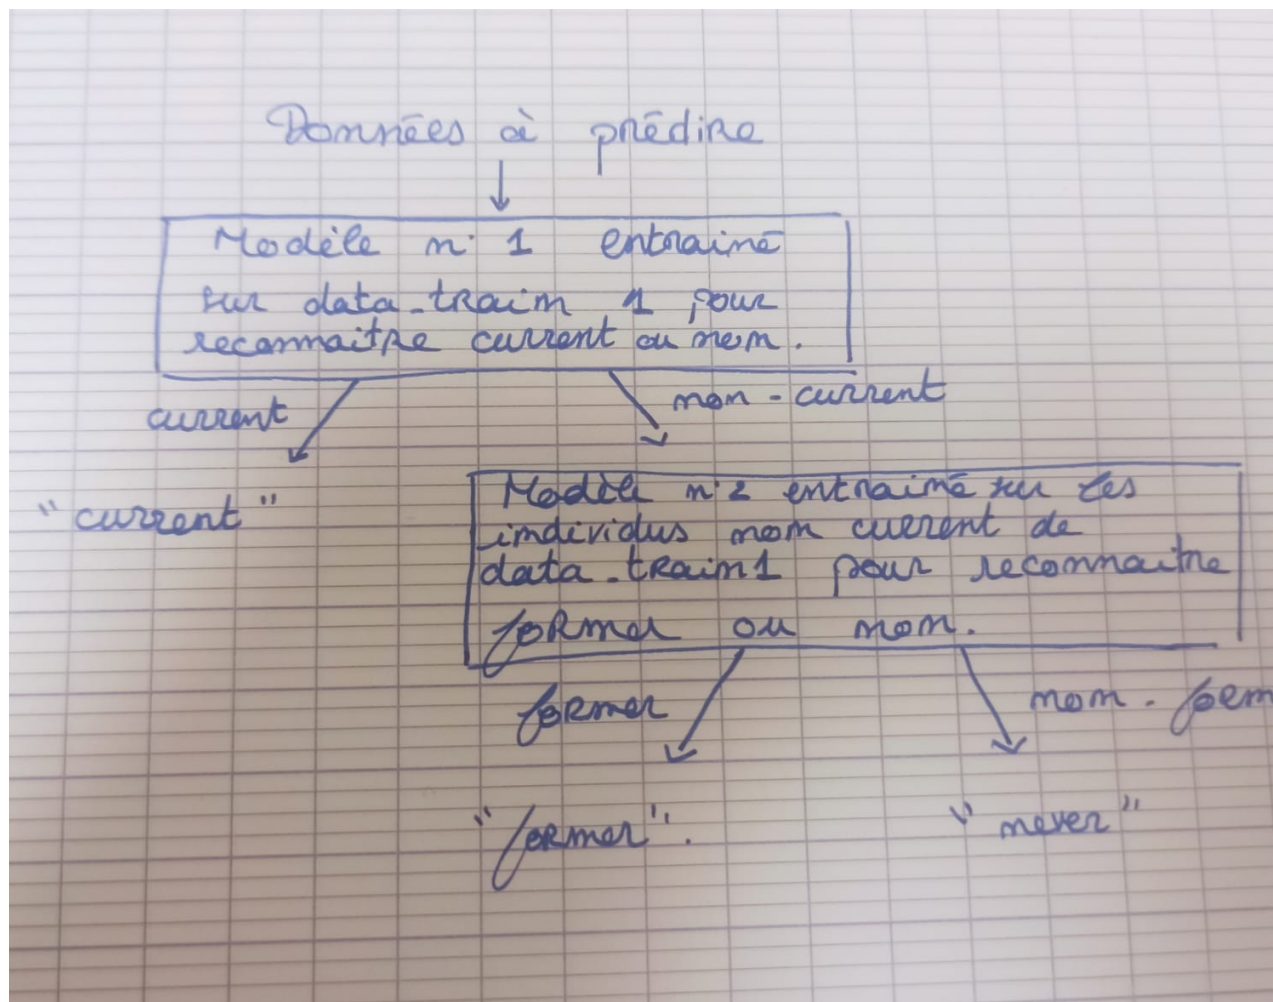 Données à prédire
Modèle n° 1 entrainé
sur data_train 1 pour
reconnaitre current ou non.
current
non-current
"current"
Modèle n°2 entrainé sur les
individus non current de
data_train1 pour reconnaitre
former ou non.
former
non-form
"former".
"never"